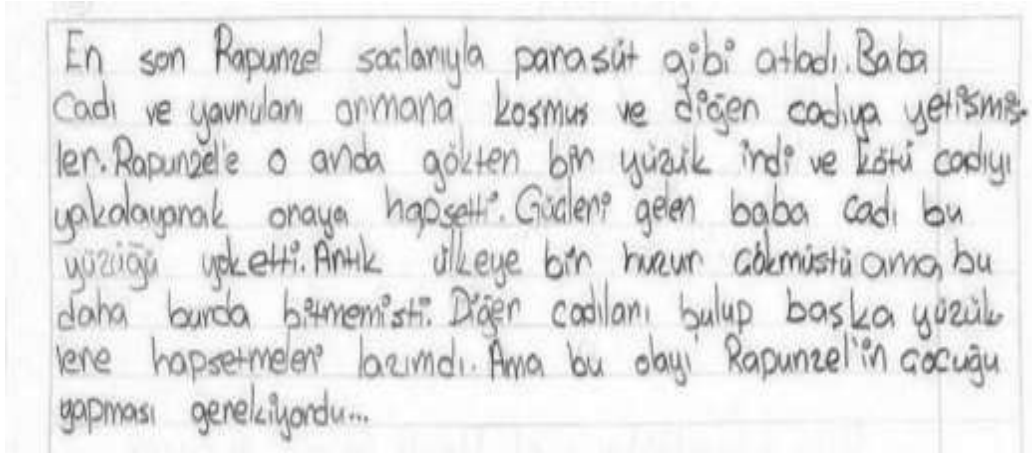 En son Rapunzel saclarıyla parasüt gibi atladı. Baba
Cadı ve yavruları ormana kosmus ve diğer cadıya yetişmiş-
ler. Rapunzel'e o anda gökten bir yüzük indi ve kötü cadıyı
yakalayarak oraya hapsetti. Gücleri gelen baba cadı bu
yüzüğü yoketti. Artık ülkeye bir huzur cökmüstü ama bu
daha burda bitmemisti. Diğer cadıları bulup başka yüzük
lere hapsetmeleri lazımdı. Ama bu olayı Rapunzel'in çocuğu
yapması gerekiyordu...